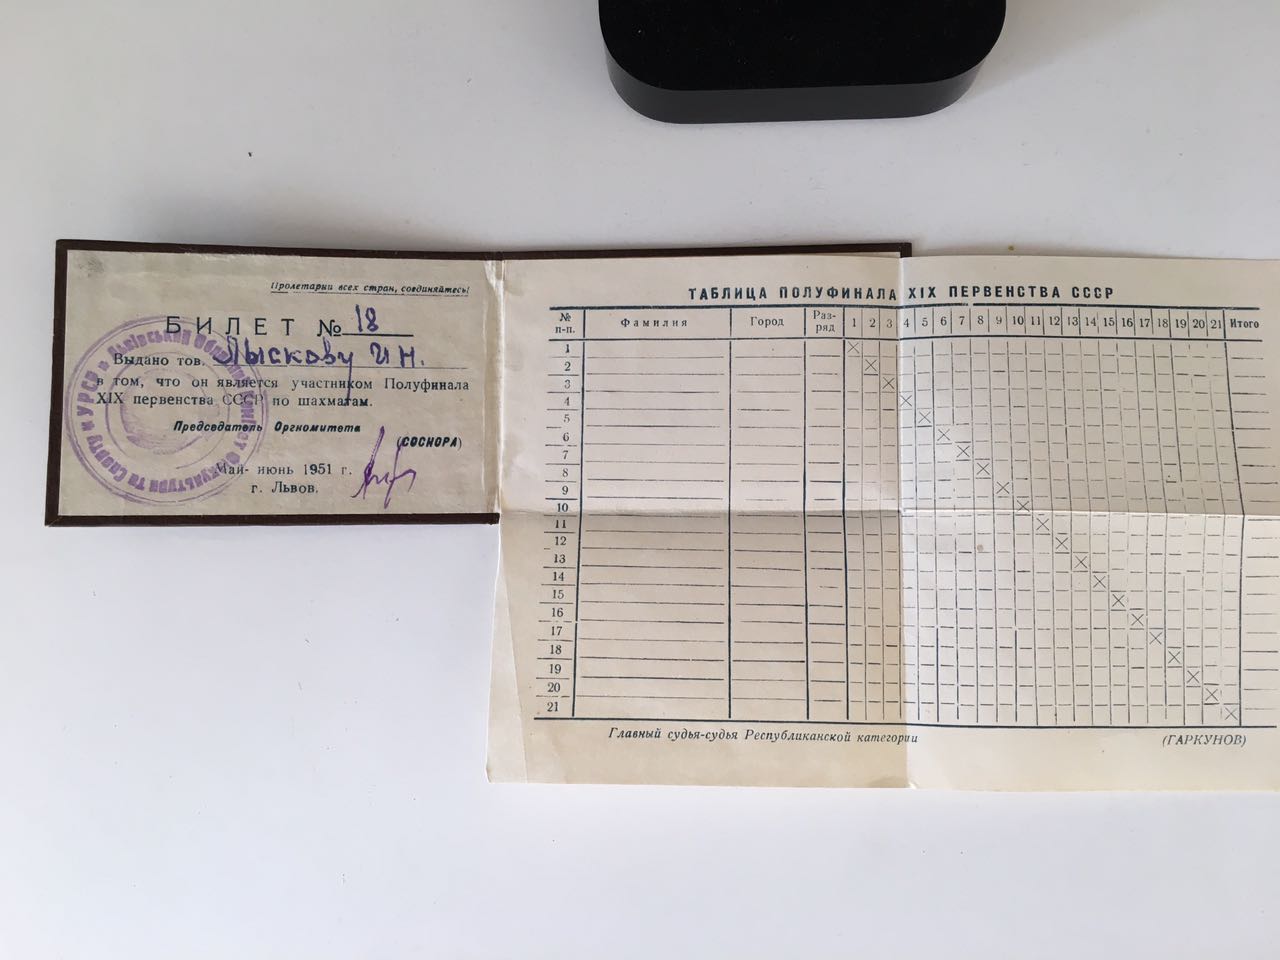 Пролетарии всех стран, соединяйтесь!
БИЛЕТ № 18
Выдано тов. Лыскову И Н.
в том, что он является участником Полуфинала
XIX первенства СССР по шахматам.
Председатель Оргкомитета
(СОСНОРА)
Май- июнь 1951 г.
г. Львов.
Львівський Обласний Комітет Фізкультури та Спорту УРСР
ТАБЛИЦА ПОЛУФИНАЛА XIX ПЕРВЕНСТВА СССР
№ п-п. Фамилия Город Раз-ряд 1 2 3 4 5 6 7 8 9 10 11 12 13 14 15 16 17 18 19 20 21 Итого
1
2
3
4
5
6
7
8
9
10
11
12
13
14
15
16
17
18
19
20
21
Главный судья-судья Республиканской категории (ГАРКУНОВ)